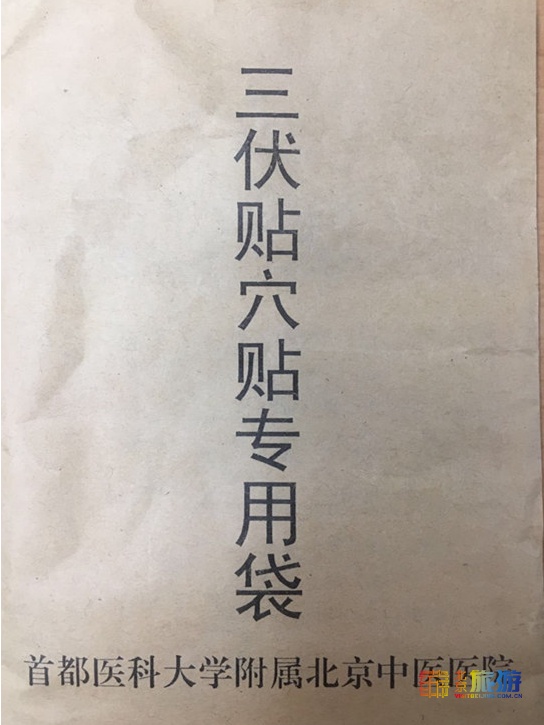 三伏贴穴贴专用袋
首都医科大学附属北京中医医院
旅游